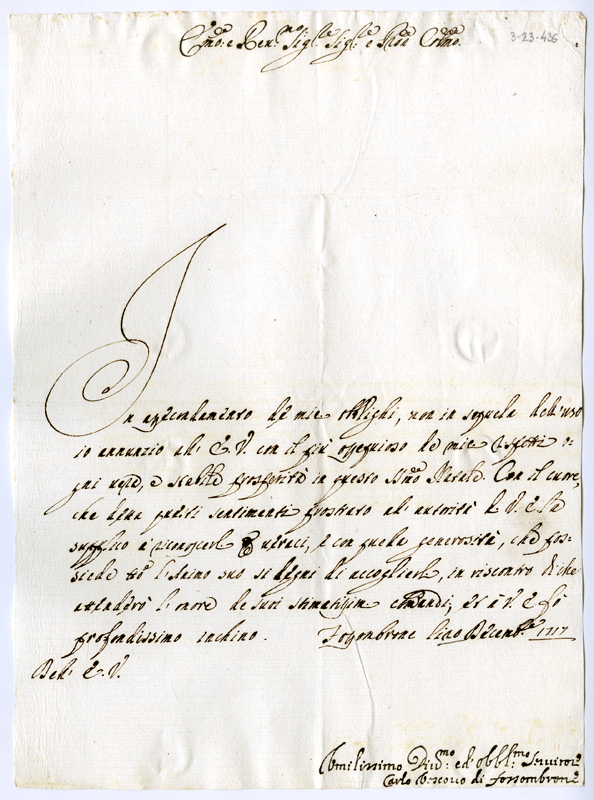 Emo: e Ren:mo Sigre Sigre e Pron Colmo.
3-23-436
In attendamento de miei oblighi, non in sequela dell'uso
io annunzio all' E. V. con il più ossequioso de miei rispetti o-
gni vera, e stabile prosperità in questo SSmo Natale. Con il cuore,
che denn questi sentimenti prostrato all' autorità di V. E. la
supplico à riconoscerli veraci, e con quella generosità, che pos-
siede l'animo suo si degni di accoglierli, in riscontro di che
attenderò l'onore de suoi stimatissimi comandi, et à V. E. fò
profondissimo inchino. Fosombrone Dicembre 1717
Dell' E. V.
Umilissimo Divmo ed obblmo Servitore
Carlo Vescovo di Fossombrone